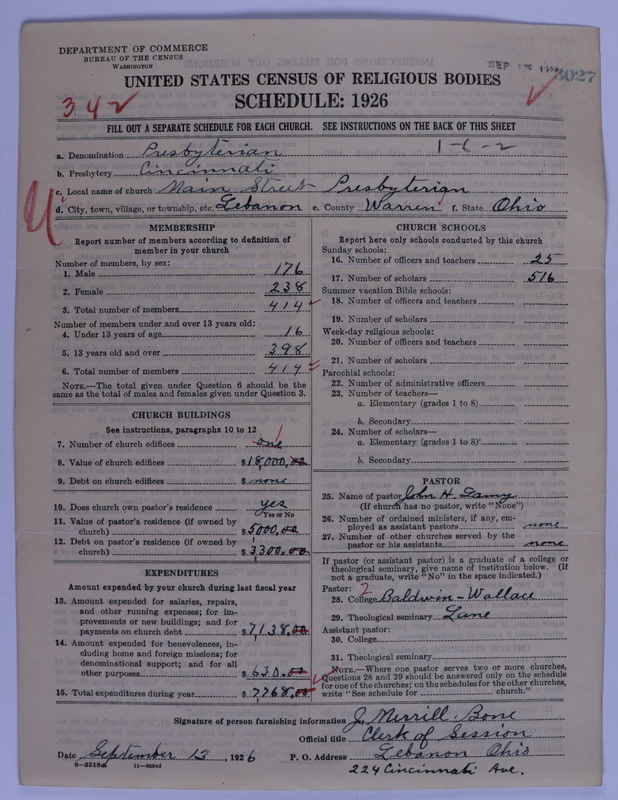 DEPARTMENT OF COMMERCE
BUREAU OF THE CENSUS
WASHINGTON
UNITED STATES CENSUS OF RELIGIOUS BODIES
SCHEDULE: 1926
SEP
3027
342
FILL OUT A SEPARATE SCHEDULE FOR EACH CHURCH. SEE INSTRUCTIONS ON THE BACK OF THIS SHEET
1-6-2
a. Denomination Presbyterian
b. Presbytery Cincinnati
c. Local name of church Main Street Presbyterian
d. City, town, village, or township, etc. Lebanon e. County Warren f. State Ohio
MEMBERSHIP
Report number of members according to definition of
member in your church
Number of members, by sex:
1. Male 176
2. Female 238
3. Total number of members 414
Number of members under and over 13 years old:
4. Under 13 years of age 16
5. 13 years old and over 398
6. Total number of members 414
NOTE.—The total given under Question 6 should be the
same as the total of males and females given under Question 3.
CHURCH BUILDINGS
See instructions, paragraphs 10 to 12
7. Number of church edifices one 1
8. Value of church edifices $18,000.00
9. Debt on church edifices $ none
10. Does church own pastor's residence yes
Yes or No
11. Value of pastor's residence (if owned by
church) $5000.00
12. Debt on pastor's residence (if owned by
church) $3,300.00
EXPENDITURES
Amount expended by your church during last fiscal year
13. Amount expended for salaries, repairs,
and other running expenses; for im-
provements or new buildings; and for
payments on church debt $7,138.00
14. Amount expended for benevolences, in-
cluding home and foreign missions; for
denominational support; and for all
other purposes $630.00
15. Total expenditures during year $7,768.00
CHURCH SCHOOLS
Report here only schools conducted by this church
Sunday schools:
16. Number of officers and teachers 25
17. Number of scholars 516
Summer vacation Bible schools:
18. Number of officers and teachers
19. Number of scholars
Week-day religious schools:
20. Number of officers and teachers
21. Number of scholars
Parochial schools:
22. Number of administrative officers
23. Number of teachers—
a. Elementary (grades 1 to 8)
b. Secondary
24. Number of scholars—
a. Elementary (grades 1 to 8)
b. Secondary
PASTOR
25. Name of pastor John H.
(If church has no pastor, write "None")
26. Number of ordained ministers, if any, em-
ployed as assistant pastors none
27. Number of other churches served by the
pastor or his assistants none
If pastor (or assistant pastor) is a graduate of a college or
theological seminary, give name of institution below. (If
not a graduate, write "No" in the space indicated.)
Pastor: 2
28. College Baldwin-Wallace
29. Theological seminary Lane
Assistant pastor:
30. College
31. Theological seminary
NOTE.—Where one pastor serves two or more churches,
Questions 28 and 29 should be answered only on the schedule
for one of the churches; on the schedules for the other churches,
write "See schedule for church."
Signature of person furnishing information J. Merrill Bone
Official title Clerk of Session
Date September 13, 1926 P. O. Address Lebanon Ohio
224 Cincinnati Ave.